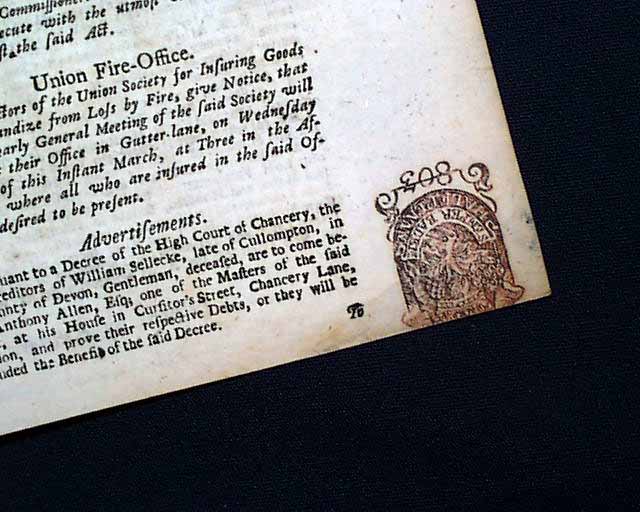 Commissioners
ecute with the utmost
the said Act.
Union Fire-Office.
ctors of the Union Society for Insuring Goods
andize from Loſs by Fire, give Notice, that
early General Meeting of the ſaid Society will
their Office in Gutter-lane, on Wedneſday
of this Inſtant March, at Three in the Af-
where all who are inſured in the ſaid Of-
deſired to be preſent.
Advertiſements.
ſuant to a Decree of the High Court of Chancery, the
reditors of William Sellecke, late of Cullompton, in
unty of Devon, Gentleman, deceaſed, are to come be-
Anthony Allen, Eſq; one of the Maſters of the ſaid
, at his Houſe in Curſitor's Street, Chancery Lane,
ion, and prove their reſpective Debts, or they will be
uded the Benefit of the ſaid Decree.